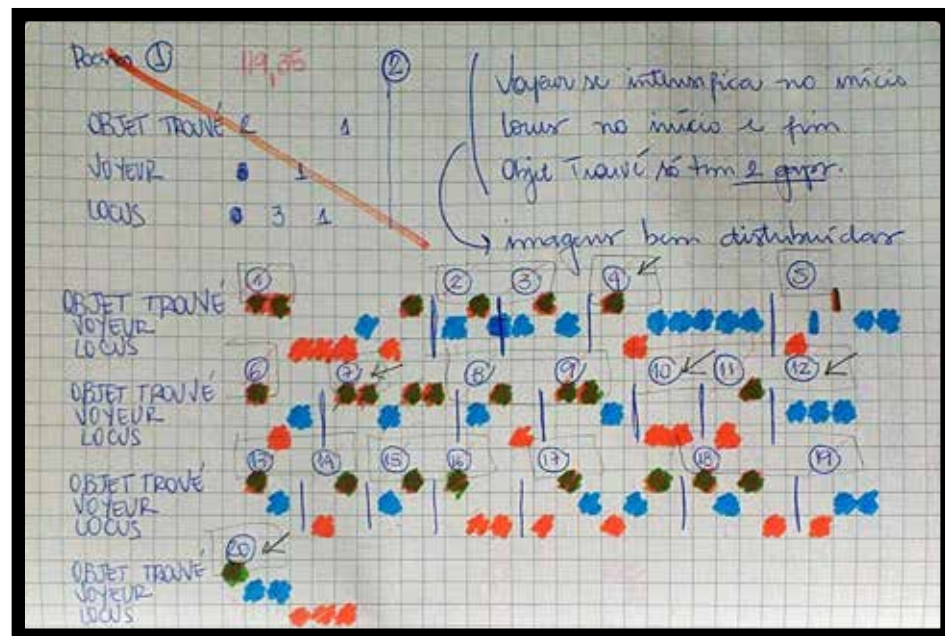 Poema ①
119,35
②
OBJET TROUVÉ 2 1
VOYEUR 1
LOCUS 3 1
Voyeur se intensifica no início
locus no início e fim
Objet Trouvé só tem 2 grupos.
imagens bem distribuídas
① ② ③ ④ ⑤
OBJET TROUVÉ
VOYEUR
LOCUS
⑥ ⑦ ⑧ ⑨ ⑩ ⑪ ⑫
OBJET TROUVÉ
VOYEUR
LOCUS
⑬ ⑭ ⑮ ⑯ ⑰ ⑱ ⑲
OBJET TROVÉ
VOYEUR
LOCUS
⑳
OBJET TROUVÉ
VOYEUR
LOCUS